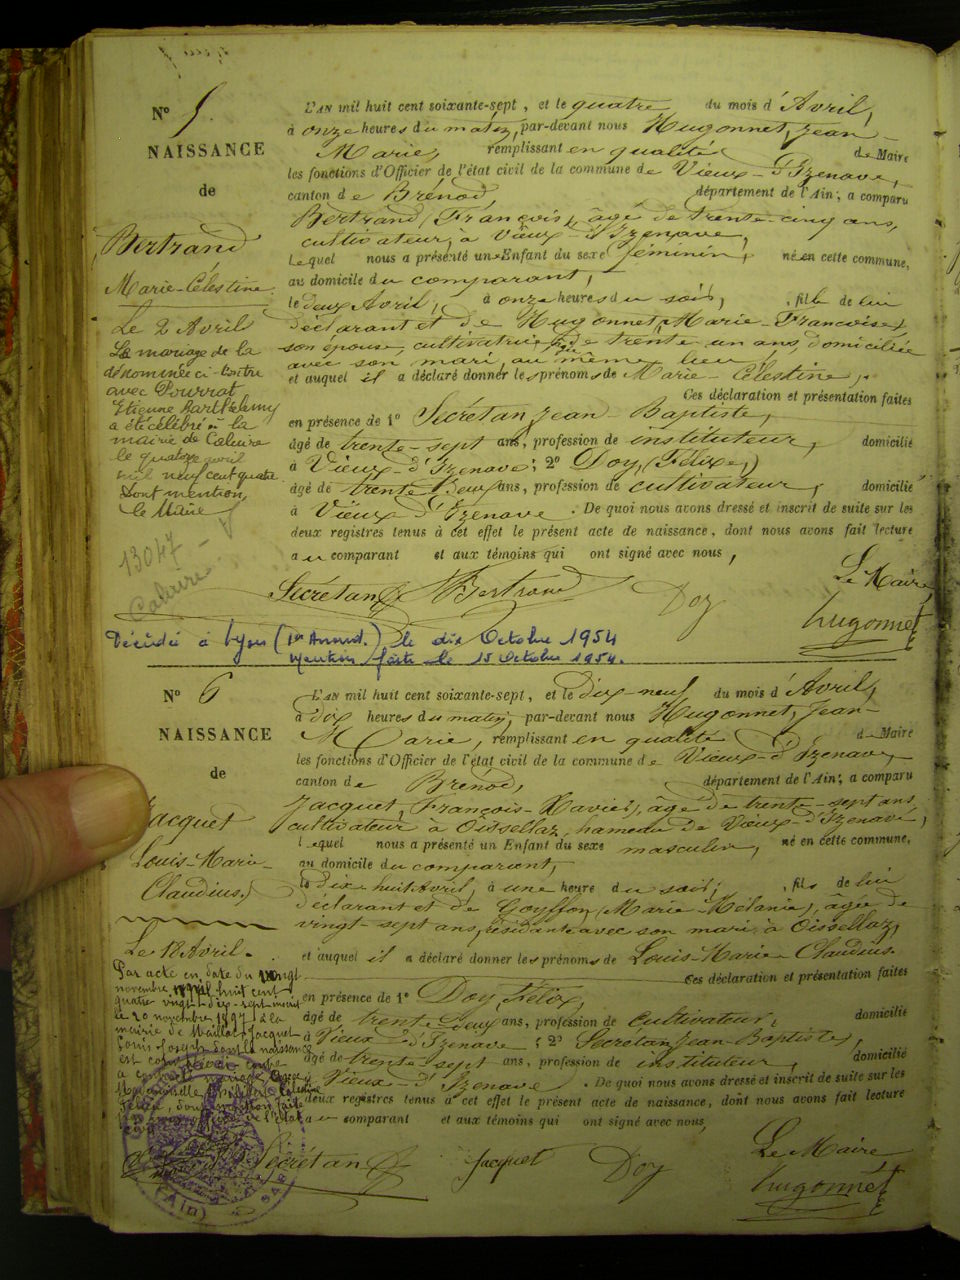 N° 5.
NAISSANCE
de
Bertrand
Marie-Célestine.
Le 2 Avril
Le mariage de la
dénommée ci-contre
avec Pourrat
Etienne Barthélemy
a été célébré à la
mairie de Caluire
le quatorze avril
mil neuf cent quatre
Dont mention,
Le Maire
13047
Caluire
L'AN mil huit cent soixante-sept, et le quatre du mois d'Avril,
à onze heures du matin, par-devant nous Hugonnet, Jean-
Marie, remplissant en qualité de Maire
les fonctions d'Officier de l'état civil de la commune de Vieux-d'Izenave,
canton de Brénod, département de l'Ain; a comparu
Bertrand (François), âgé de trente-cinq ans,
cultivateur, à Vieux-d'Izenave,
Lequel nous a présenté un Enfant du sexe féminin, né en cette commune,
au domicile du comparant,
le deux Avril, à onze heures du soir, fille de lui
déclarant et de Hugonnet, Marie-Françoise,
son épouse, cultivatrice, âgée de trente un ans, domiciliée
avec son mari, au même lieu
et auquel il a déclaré donner les prénoms de Marie-Célestine,.
Ces déclaration et présentation faites
en présence de 1° Secrétan, Jean-Baptiste,
âgé de trente-sept ans, profession de instituteur, domicilié
à Vieux-d'Izenave; 2° Doy, (Félix,)
âgé de trente deux ans, profession de cultivateur, domicilié
à Vieux d'Izenave. De quoi nous avons dressé et inscrit de suite sur les
deux registres tenus à cet effet le présent acte de naissance, dont nous avons fait lecture
au comparant et aux témoins qui ont signé avec nous,
Le Maire,
Secrétan Bertrand Doy hugonnet
Décédée à Lyon (1er Arrond.) le dix Octobre 1954
Mention faite le 15 Octobre 1954.
N° 6
NAISSANCE
de
Jacquet
Louis-Marie-
Claudius.
Le 18 Avril.
Par acte en date du vingt
novembre mil huit cent
quatre vingt-dix-sept inscrit
le 20 novembre 1897 à la
mairie de Maillat, Jacquet
Louis Joseph dont la naissance
est
a contracté mariage avec
L'AN mil huit cent soixante-sept, et le dix-neuf du mois d'Avril,
à dix heures du matin, par-devant nous Hugonnet, Jean-
Marie, remplissant en qualité de Maire
les fonctions d'Officier de l'état civil de la commune de Vieux-d'Izenave,
canton de Brénod, département de l'Ain; a comparu
Jacquet, François-Xavier, âgé de trente-sept ans,
cultivateur à Oissellaz, hameau de Vieux-d'Izenave,
lequel nous a présenté un Enfant du sexe masculin, né en cette commune,
au domicile du comparant,
le dix-huit Avril, à une heure du soir, fils de lui
déclarant et de Goyffon (Marie-Mélanie), âgée de
vingt-sept ans, résidante avec son mari, à Oissellaz,
et auquel il a déclaré donner les prénoms de Louis-Marie-Claudius.
Ces déclaration et présentation faites
en présence de 1° Doy, Félix,
âgé de trente-deux ans, profession de cultivateur, domicilié
à Vieux d'Izenave; 2° Secrétan, Jean-Baptiste,
âgé de trente-sept ans, profession de instituteur, domicilié
à Vieux-d'Izenave. De quoi nous avons dressé et inscrit de suite sur les
deux registres tenus à cet effet le présent acte de naissance, dont nous avons fait lecture
au comparant et aux témoins qui ont signé avec nous,
Le Maire
Secrétan Jacquet Doy hugonnet
(AIN)